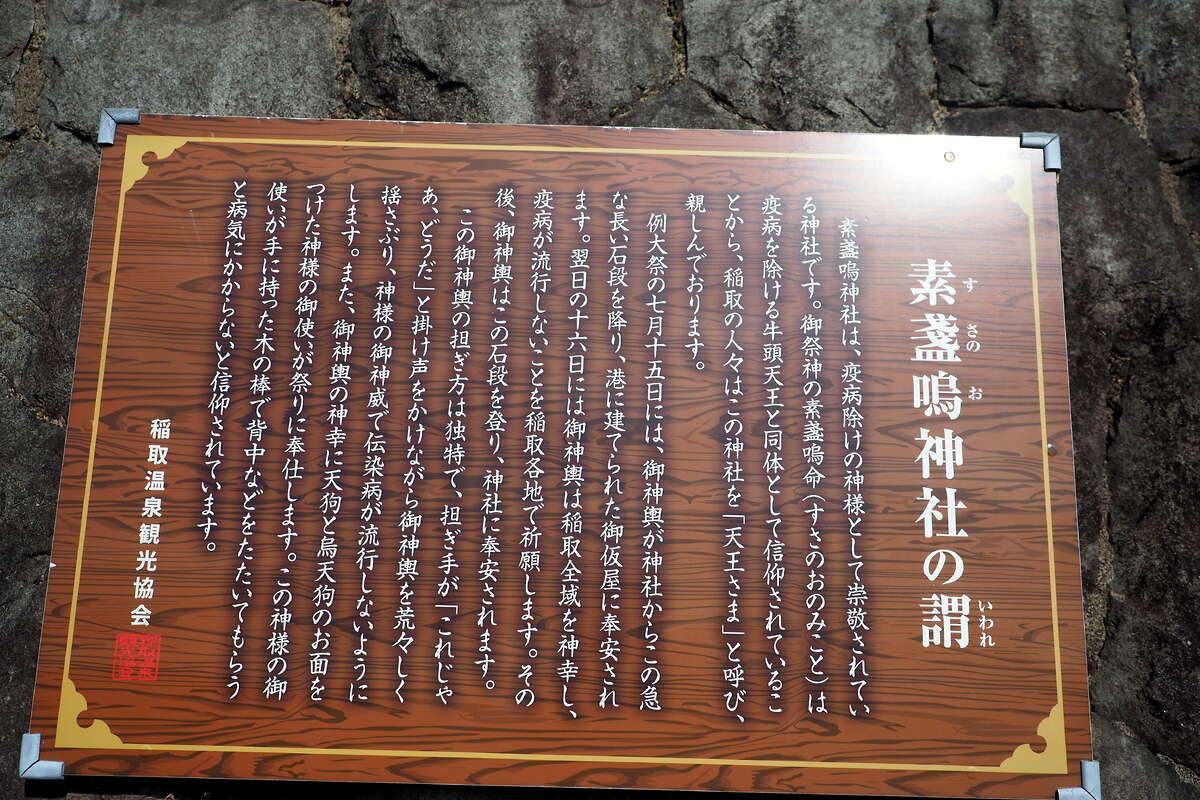 素盞嗚神社の謂
すさのお
いわれ
素盞嗚神社は、疫病除けの神様として崇敬されてい
る神社です。御祭神の素盞嗚命(すさのおのみこと)は
疫病を除ける牛頭天王と同体として信仰されているこ
とから、稲取の人々はこの神社を「天王さま」と呼び、
親しんでおります。
例大祭の七月十五日には、御神輿が神社からこの急
な長い石段を降り、港に建てられた御仮屋に奉安され
ます。翌日の十六日には御神輿は稲取全域を神幸し、
疫病が流行しないことを稲取各地で祈願します。その
後、御神輿はこの石段を登り、神社に奉安されます。
この御神輿の担ぎ方は独特で、担ぎ手が「これじゃ
あ、どうだ」と掛け声をかけながら御神輿を荒々しく
揺さぶり、神様の御神威で伝染病が流行しないように
します。また、御神輿の神幸に天狗と烏天狗のお面を
つけた神様の御使いが祭りに奉仕します。この神様の御
使いが手に持った木の棒で背中などをたたいてもらう
と病気にかからない、と信仰されています。
稲取温泉観光協会